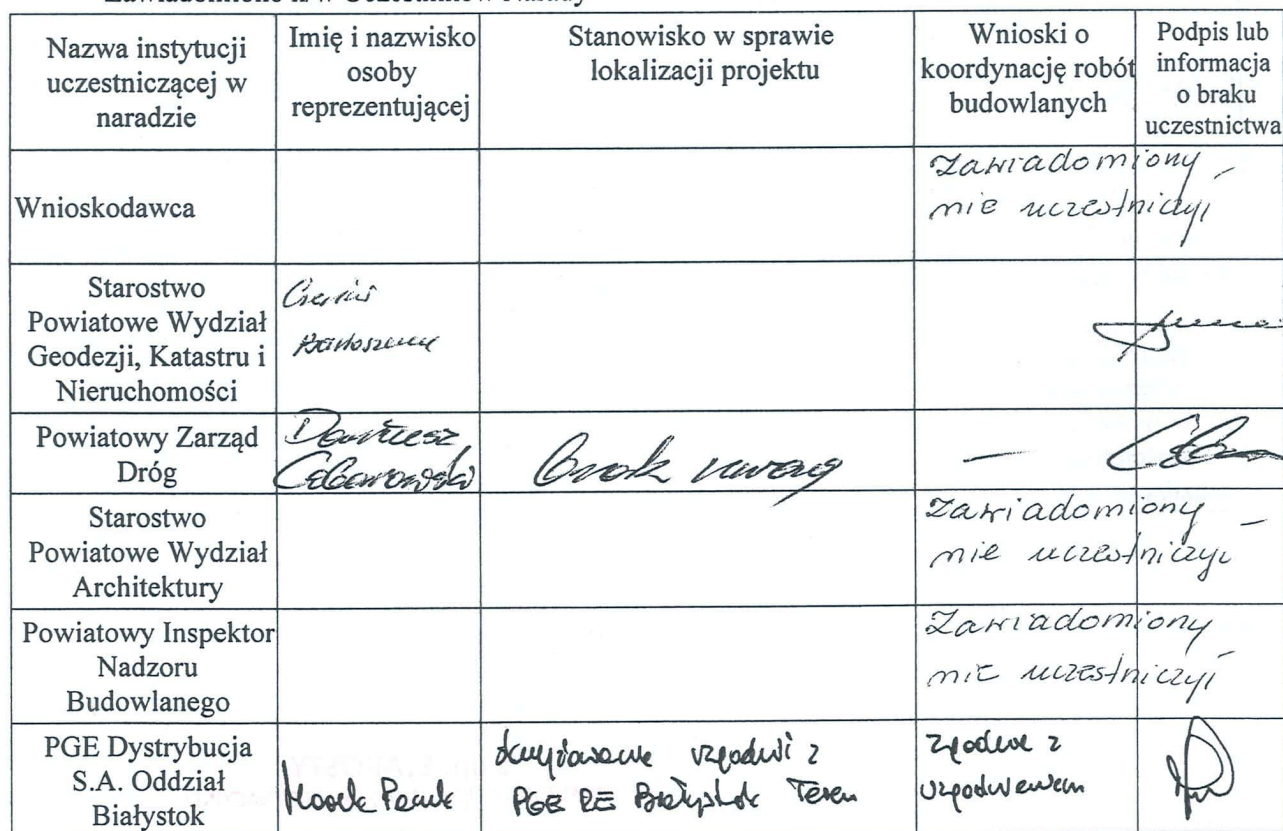 Nazwa instytucji
uczestniczącej w
naradzie
Imię i nazwisko
osoby
reprezentującej
Stanowisko w sprawie
lokalizacji projektu
Wnioski o
koordynację robót
budowlanych
Podpis lub
informacja
o braku
uczestnictwa
Wnioskodawca
Zawiadomiony
nie uczestniczył
Starostwo
Powiatowe Wydział
Geodezji, Katastru i
Nieruchomości
Powiatowy Zarząd
Dróg
Dariusz
brak uwag
—
Starostwo
Powiatowe Wydział
Architektury
Zawiadomiony
nie uczestniczył
Powiatowy Inspektor
Nadzoru
Budowlanego
Zawiadomiony
nie uczestniczył
PGE Dystrybucja
S.A. Oddział
Białystok
uzgodnić z
PGE RE Białystok Teren
zgodnie z
uzgodnieniem